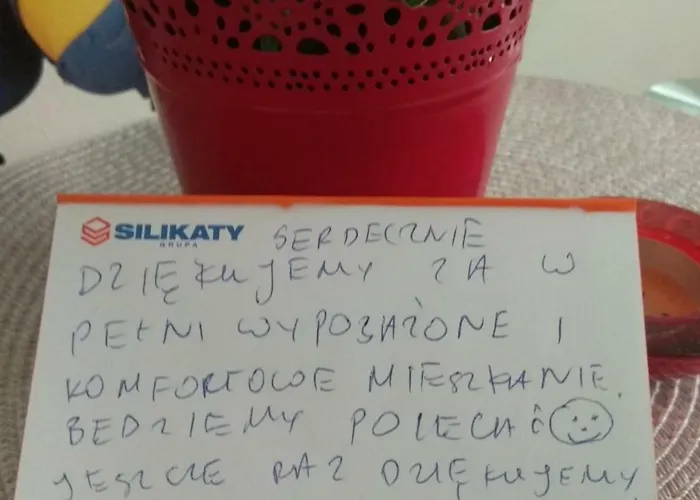 SILIKATY SERDECZNIE
GRUPA
DZIĘKUJEMY ZA W
PEŁNI WYPOSAŻONE I
KOMFORTOWE MIESZKANIE.
BEDZIEMY POLECAĆ
JESZCZE RAZ DZIĘKUJEMY